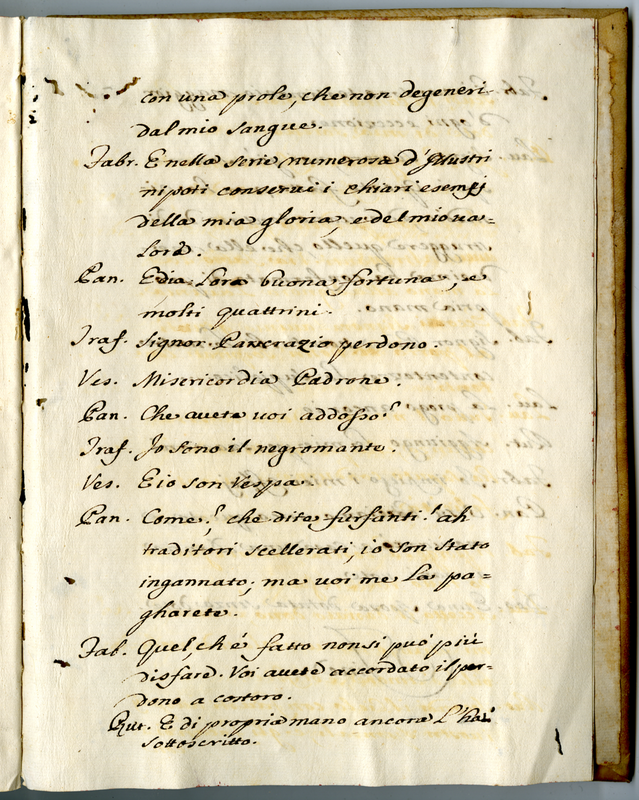 con una prole, che non degeneri
dal mio sangue.
Fabr. E nella serie numerosa d'Illustri
nipoti conservi i chiari esempj
della mia gloria, e del mio va=
lore.
Pan. E dia loro buona fortuna, e
molti quattrini.
Traf. Signor Pancrazio perdono.
Ves. Misericordia Padrone.
Pan. Che avete voi addosso?
Traf. Io sono il negromante.
Ves. E io son Vespa.
Pan. Come?, che dite furfanti! ah
traditori scellerati, io son stato
ingannato; ma voi me la pa=
gharete.
Fab. Quel, ch'é fatto non si può più
disfare. Voi avete accordato il per=
dono a costoro.
Rut. E di propria mano ancora l'hai
sottoscritto.